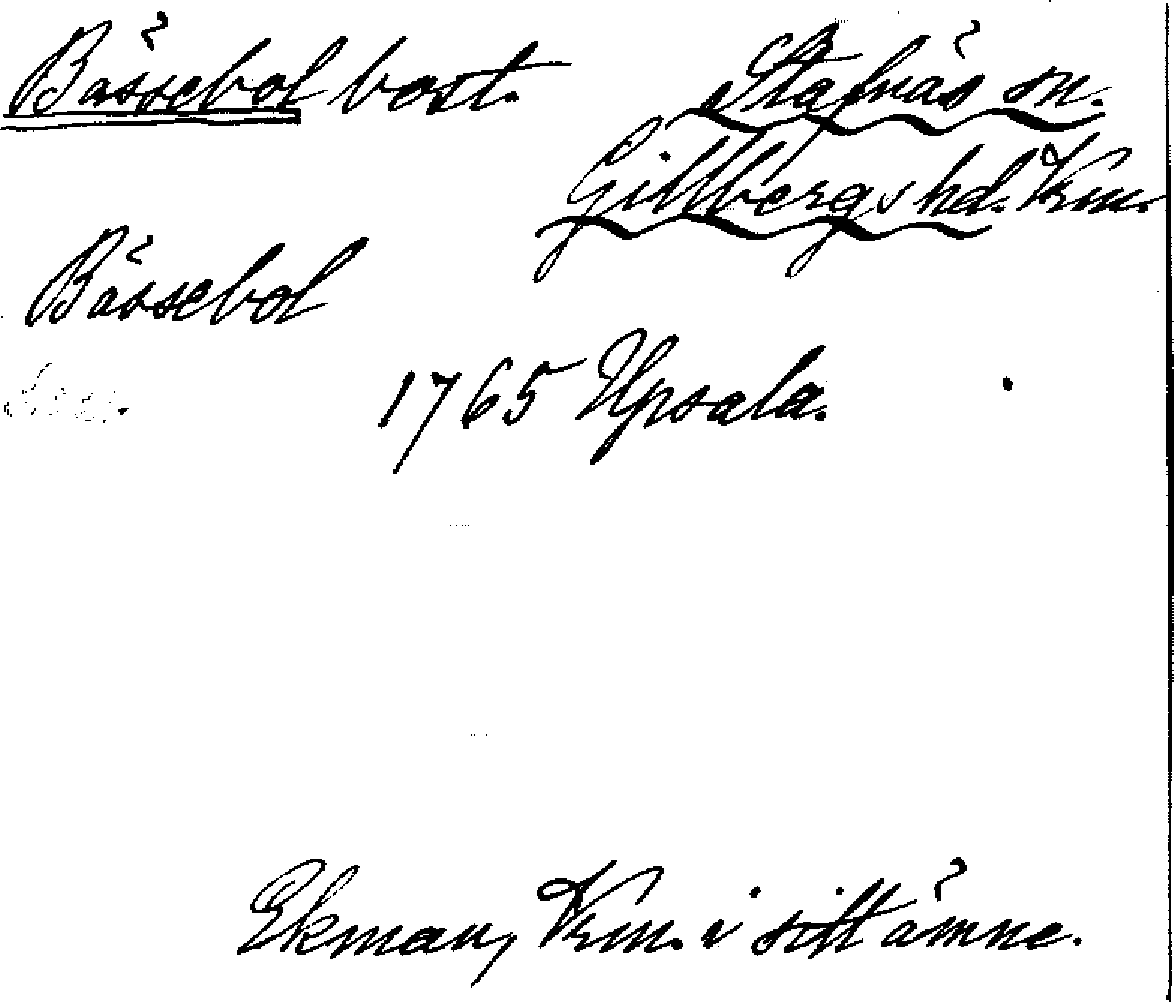 Bässebol bost. Stafnäs sn.
Gillbergs hd. Vrm.
Bässebol
1765 Upsala.
Ekman, Vrm. i sitt ämne.